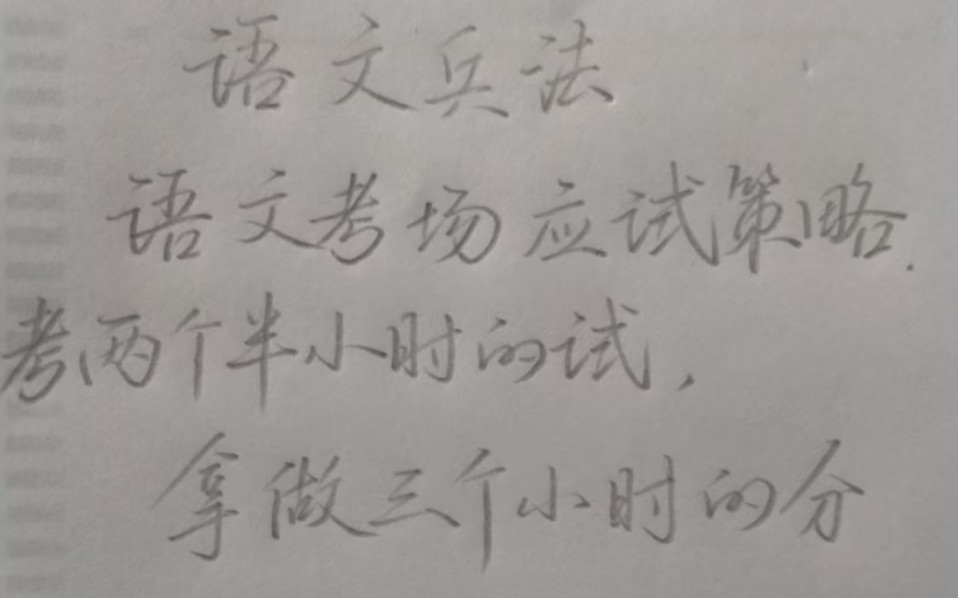 语文兵法
语文考场应试策略.
考两个半小时的试,
拿做三个小时的分